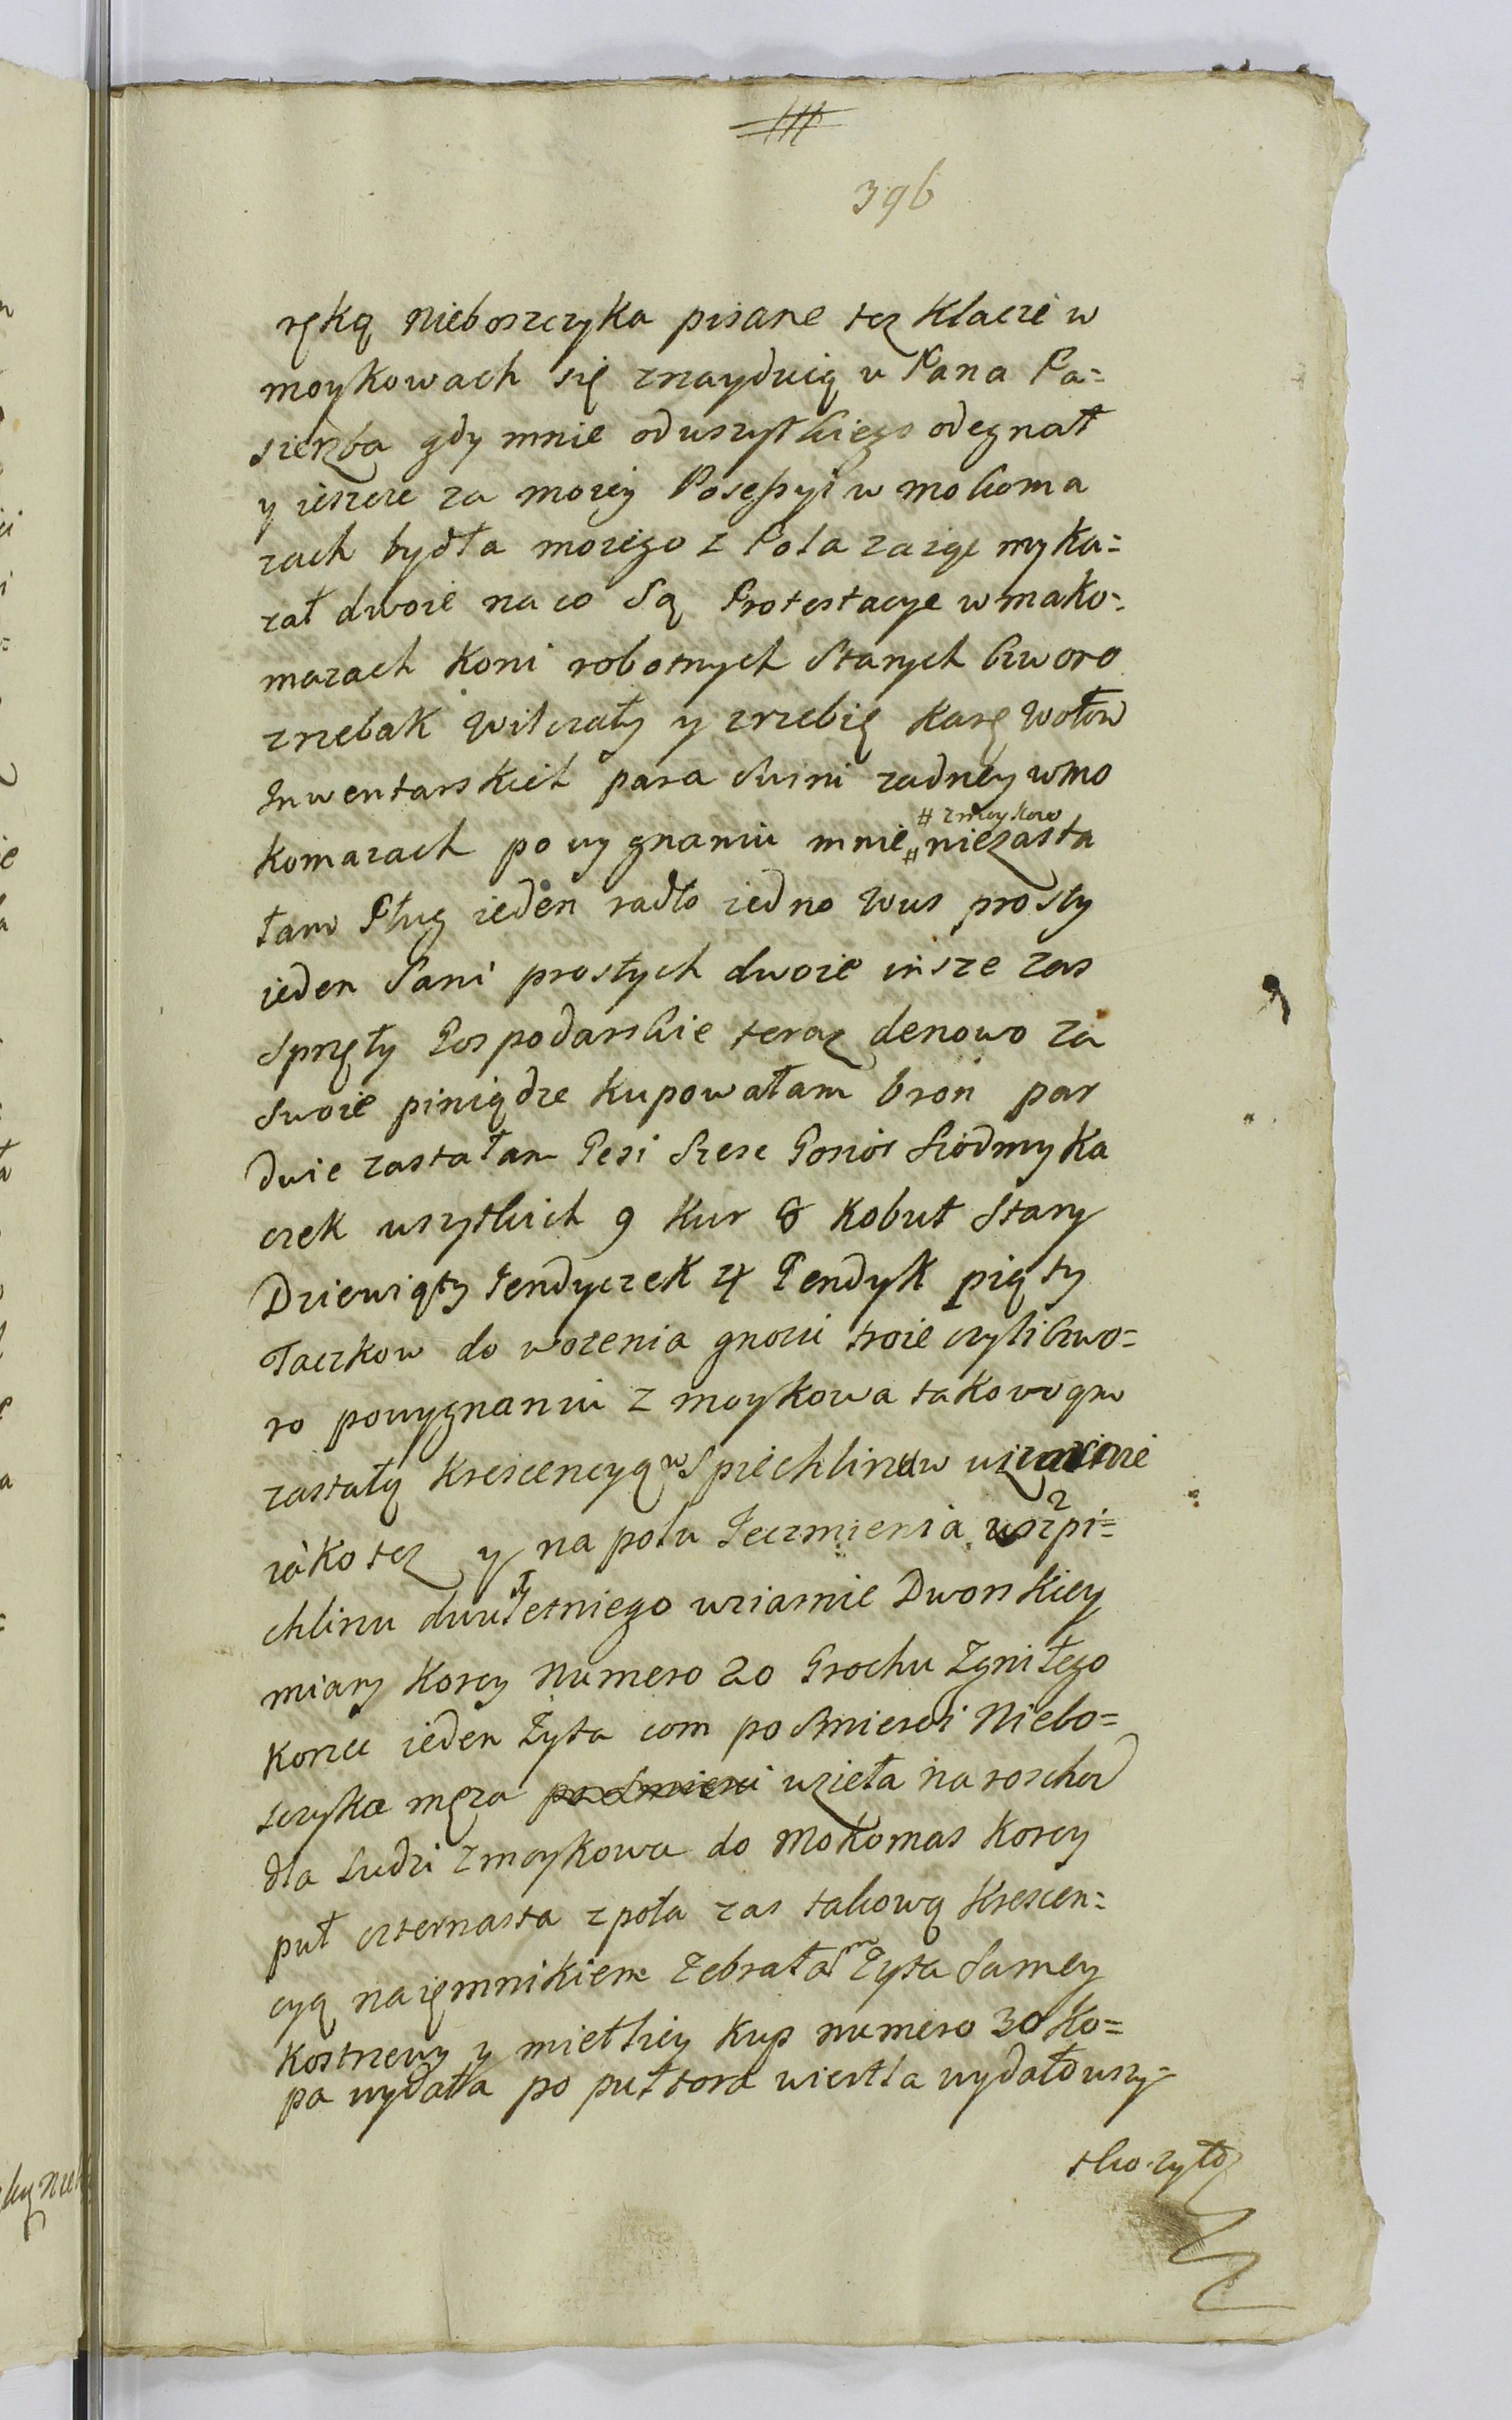 396
ręką Nieboszczyka pisane tez Klacze w
moykowach się znayduią u Pana Pa=
sierzba gdy mnie oduszystkiego odegnał
y ieszcze za moiey Posessyi w mokoma
rach bydła moiego z Pola zaiąc myka=
zał dwoie na co Są Protestacye w mako=
marach Koni robotnych Starych Czworo
zrzebak Wilczaty y zrzebię Karę Wołow
Inwentarskich para Swini zadney wmo
Komarach po wygnaniu mnie # zmoykow niezasta
łam Pług ieden radło iedno Wus prosty
ieden Sani prostych dwoie insze zas
Sprzęty Gospodarskie teraz denowo za
Swoie piniądze Kupowałam bron par
Dwie zastałam Gesi Szesc Gonsior Siodmy Ka
czek uszytkich 9 Kur 8 Kobut Stary
Dziewiąty Jendyczek 4 Jendyk piąty
Taczkow do wozenia gnoiu troie czyli Czwo=
ro powygnaniu z moykowa takovo
zastałą Krescencyą w Spichlinu w
iako tez y na polu Jeczmienia w szpi=
chlinu dwuletniego wziarnie Dworskiey
miary Korcy Numero 20 Grochu Zgniłego
Korzec ieden Zyta com po Smierci Niebo=
sczyka męza po Smierci uzieła na roschod
dla Ludzi z moykowa do Mokomar Korcy
puł czternasta z pola zas takową Krescen=
cyą naięmnikiem Zebrałam Zyta Samey
Kostrzewy y mietlicy Kup numero 30 Ko=
pa wydała po pułtora wiertla wydało uszy=
tko zyto